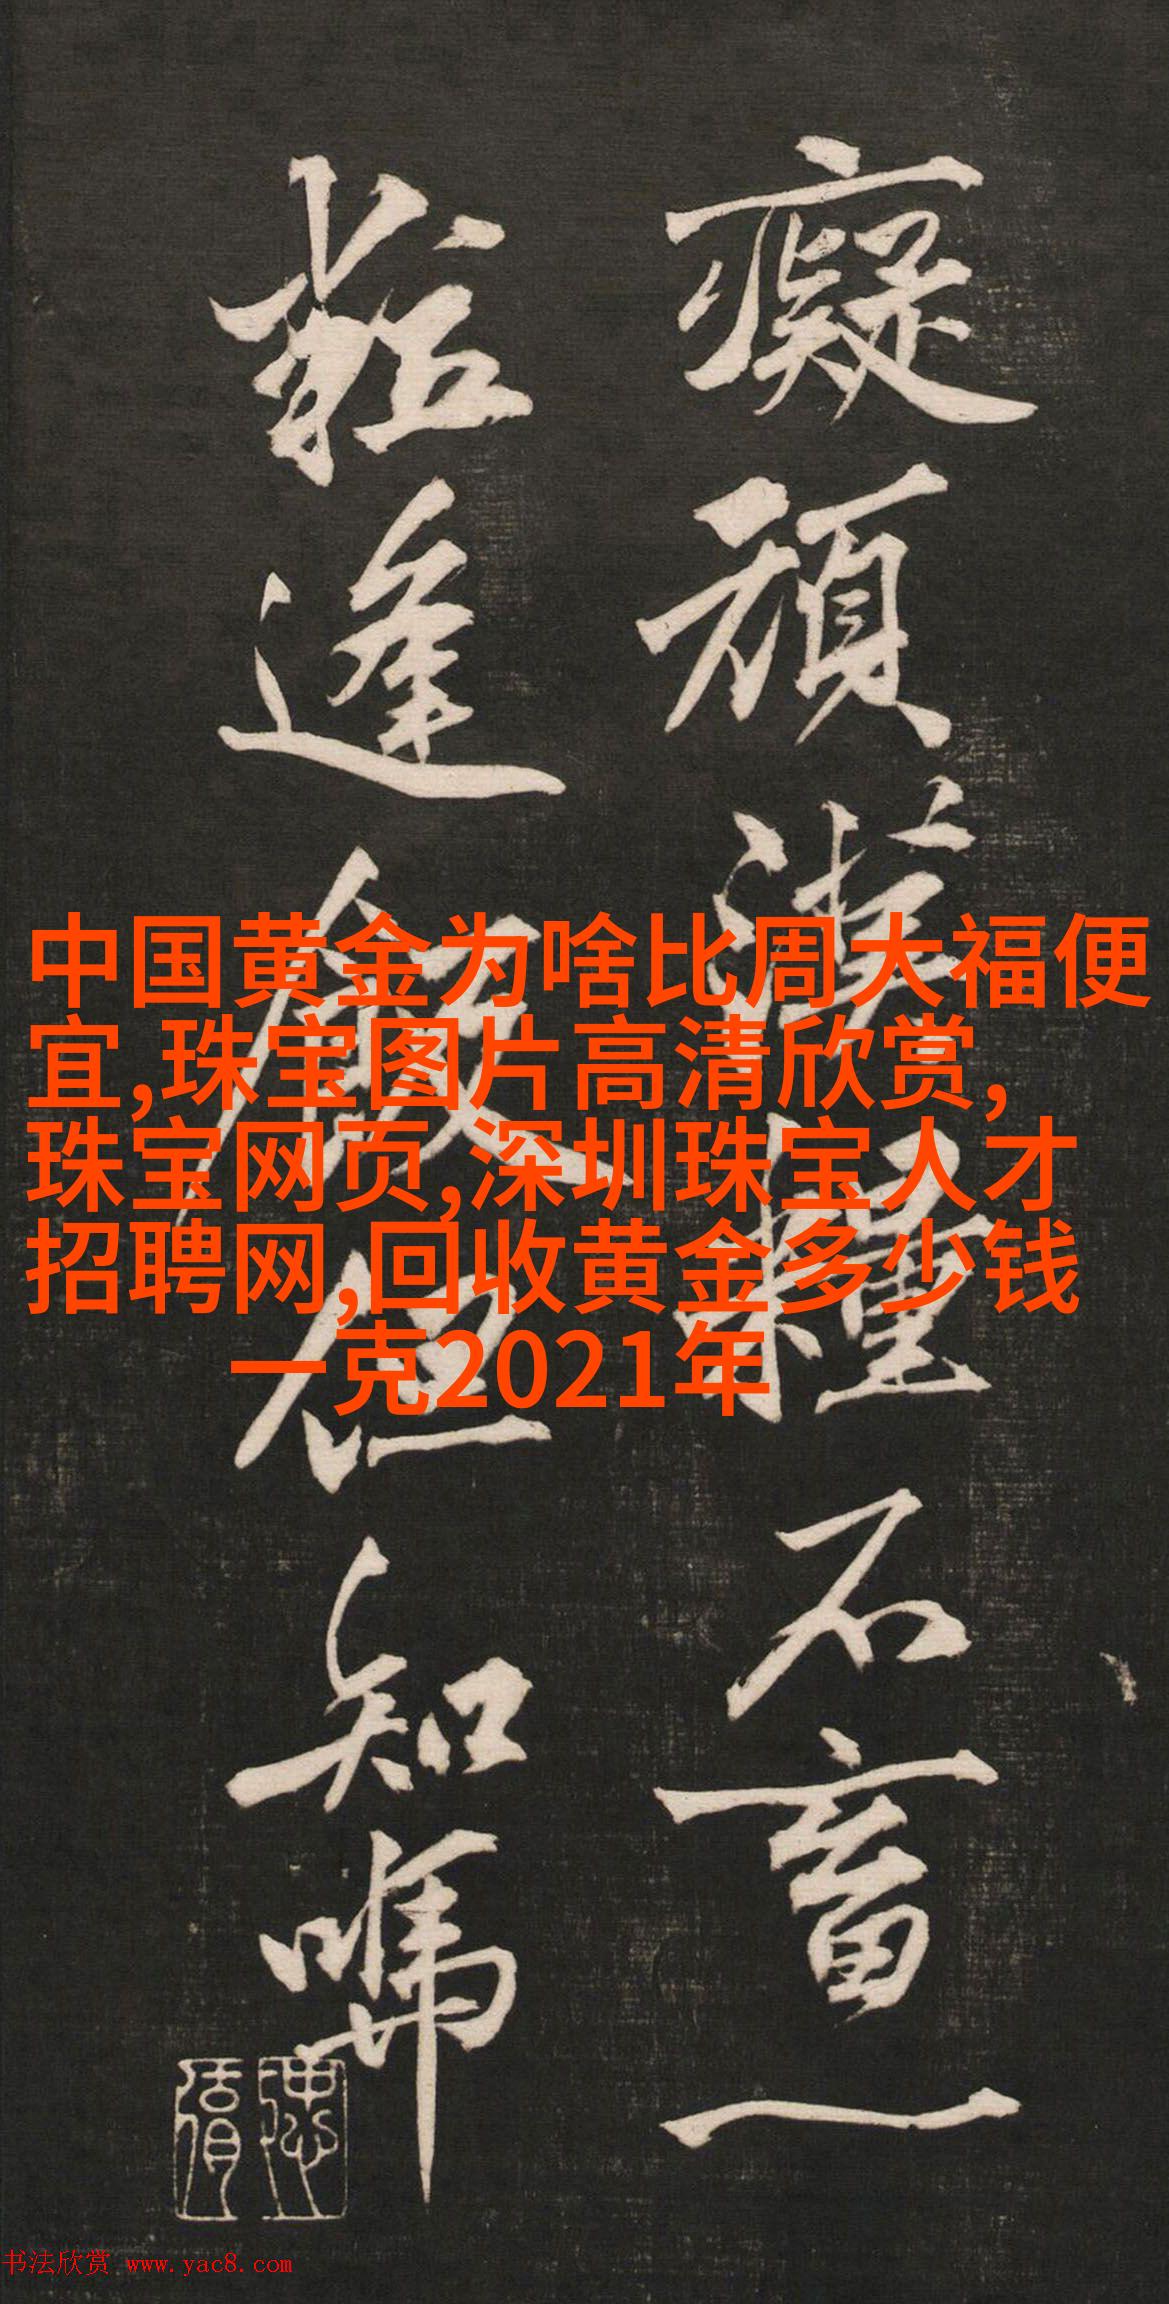 癡頑漢不畜一
逢飯但知
中国黄金为啥比周大福便
宜,珠宝图片高清欣赏,
珠宝网页,深圳珠宝人才
招聘网,回收黄金多少钱
一克2021年
书法欣赏 www.yac8.com